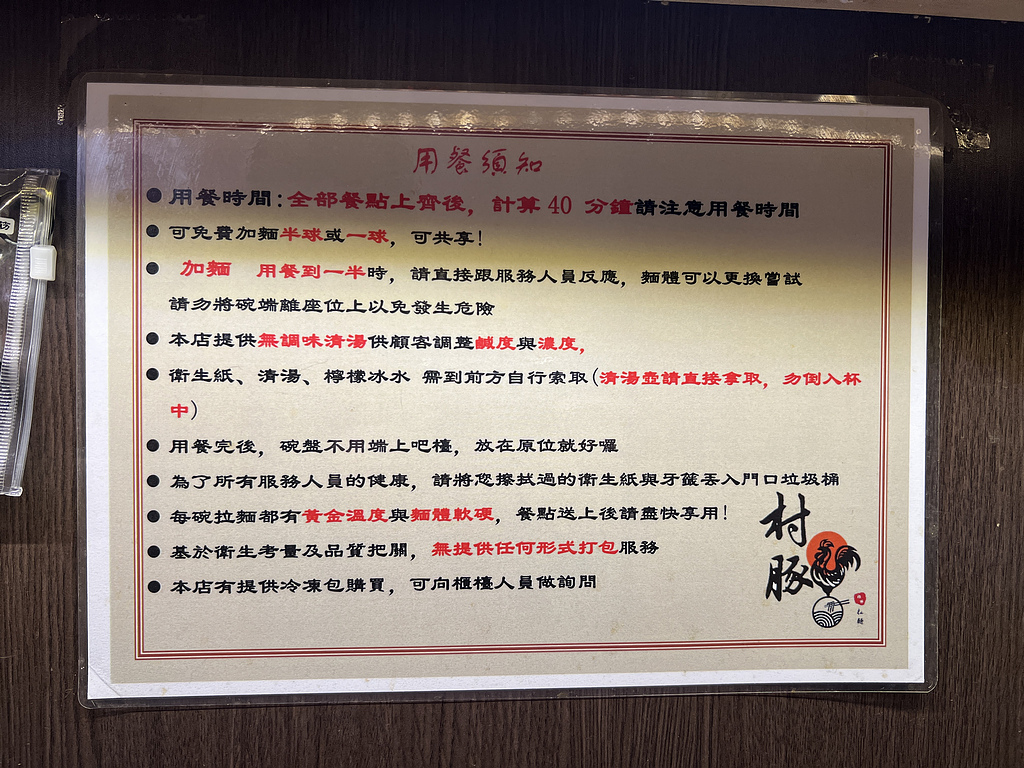 用餐須知
● 用餐時間：全部餐點上齊後，計算 40 分鐘請注意用餐時間
● 可免費加麵半球或一球，可共享！
● 加麵 用餐到一半時，請直接跟服務人員反應，麵體可以更換嘗試
請勿將碗端離座位上以免發生危險
● 本店提供無調味清湯供顧客調整鹹度與濃度，
● 衛生紙、清湯、檸檬冰水 需到前方自行索取（清湯壺請直接拿取，勿倒入杯
中）
● 用餐完後，碗盤不用端上吧檯，放在原位就好囉
● 為了所有服務人員的健康，請將您擦拭過的衛生紙與牙籤丟入門口垃圾桶
● 每碗拉麵都有黃金溫度與麵體軟硬，餐點送上後請盡快享用！
● 基於衛生考量及品質把關，無提供任何形式打包服務
● 本店有提供冷凍包購買，可向櫃檯人員做詢問
村豚